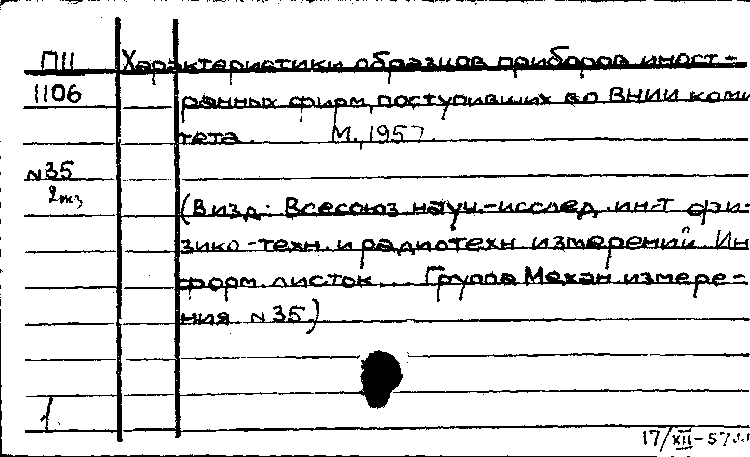 П11 Характеристики образцов приборов иност-
1106 ранных фирм, поступивших во ВНИИ коми
тета. М., 1957.
N35
2 экз
(В изд.: Всесоюз. науч.-исслед. ин-т физи-
зико-техн. и радиотехн. измерений. Ин
форм. листок... Группа Механ. измере-
ния. N 35)
1.
17/XII-57